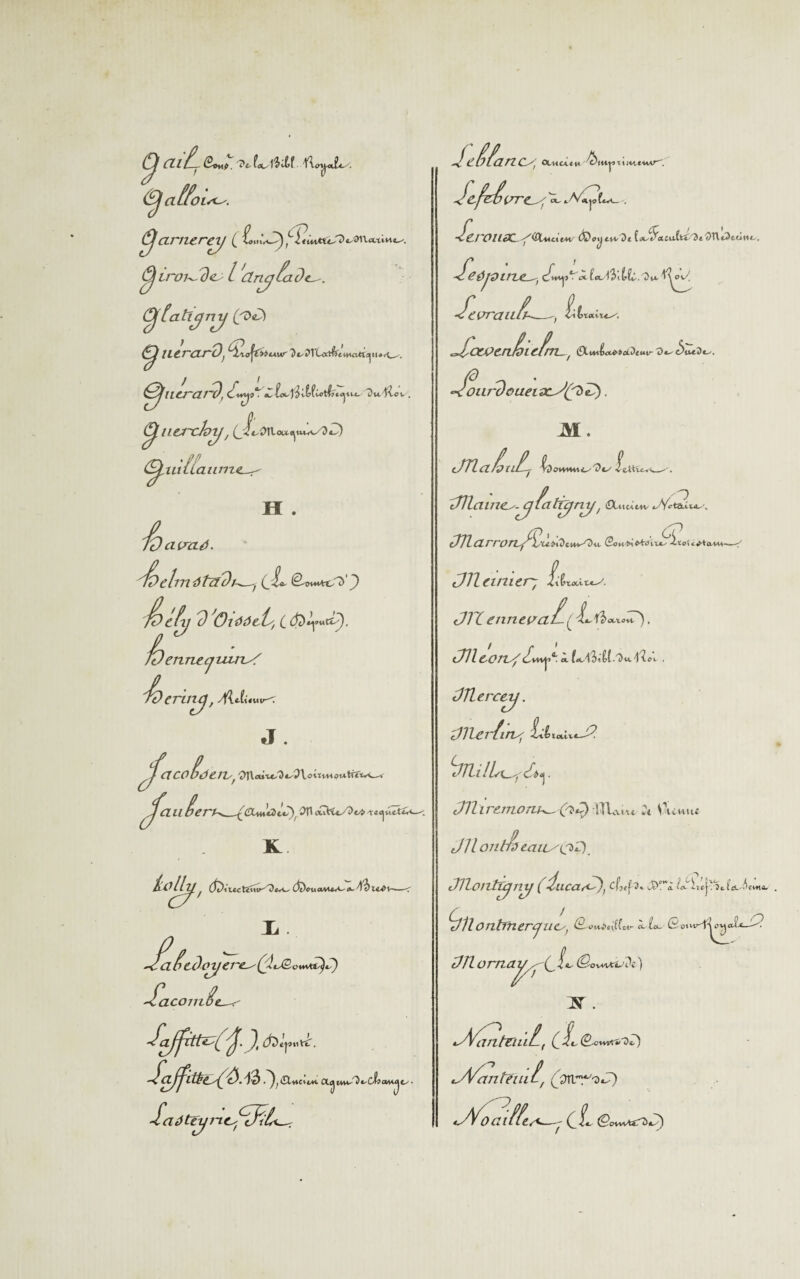 Gail, Cons.r de la Bibl. Royale.
Gallois.
Garnerey (Louis), Peintre de Marine.
Giron de l'anglade.
Glatigny (de)
Guérard, Professeur de Mathématiques.
Guérard, Emp.é à la Bibliothèque du Roi.
Guerchy, (Le Marquis de)
Guillaume
H.
Havas.
Helmstadt, (Le Comte d')
Hely d'Oissel, (Député).
Hennequin
Hering, Relieur.
J.
Jacobsen, Maire de Noirmoutiers
Jaubert (Amédée), Maître des requêtes.
K.
Kolly, Directeur des Douanes à Brest
L.
Labédoyère (Le Comte de)
Lacombe
Laffitte (J.), Député.
Laffitte (S. B.), Ancien agent de change.
Lasteyrie, Fils.
Leblanc, ancien Imprimeur.
Lefebvre, à Naples.
Leroux, Ancien Doyen de la Faculté de Médecine.
Lespine, Emp.é à la Bibli. du Roi.
Levrault, Libraire.
Lœvenhielm, Ambassadeur de Suède.
Lourdoueix (de).
M.
Mahul, homme de Lettres.
Maine-glatigny, Ancien Notaire.
Marron, Président du Consistoire Protestant
Meinier, Libraire.
Menneval (Le Baron),
Méon, Emp.é à la Bibl. du Roi.
Mercey.
Merlin, Libraire.
Millin, Esq.
Miremont (de) Maire de Vienne
Monthbeau (D).
Montigny (Lucas), Chef à la Préf. de la Seine.
Montmerqué, Conseiller à la Cour Royale.
Mornay (Le Comte de)
N.
Nanteuil, (Le Comte de)
Nanteuil, (M.r de)
Noailles, (Le Comte de)